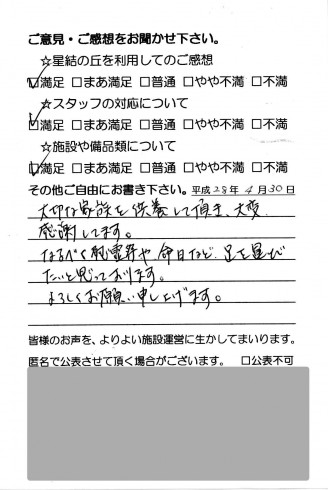 ご意見・ご感想をお聞かせ下さい。
☆星結の丘を利用してのご感想
☑満足 □まあ満足 □普通 □やや不満 □不満
☆スタッフの対応について
☑満足 □まあ満足 □普通 □やや不満 □不満
☆施設や備品類について
☑満足 □まあ満足 □普通 □やや不満 □不満
その他ご自由にお書き下さい。平成28年4月30日
大切な家族を供養して頂き、大変
感謝してます。
なるべく慰霊祭や命日など、足を運び
たいと思っております。
よろしくお願い申し上げます。
皆様のお声を、よりよい施設運営に生かしてまいります。
匿名で公表させて頂く場合がございます。 □公表不可